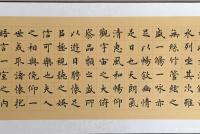 水列坐其次雖
無絲竹管絃之
盛一觴一詠亦
足以暢敘幽情
是日也天朗氣
清惠風和暢仰
觀宇宙之大俯
察品類之盛所
以遊目騁懷足
以極視聽之娛
信可樂也夫人
之相與俯仰一
世或取諸懷抱
悟言一室之內